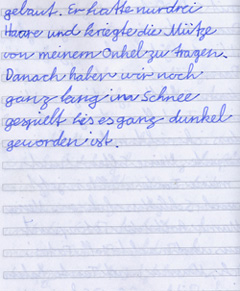 gebaut. Er hatte nur drei
Haare und kriegte die Mütze
von meinem Onkel zu tragen.
Danach haben wir noch
ganz lang im Schnee
gespielt bis es ganz dunkel
geworden ist.